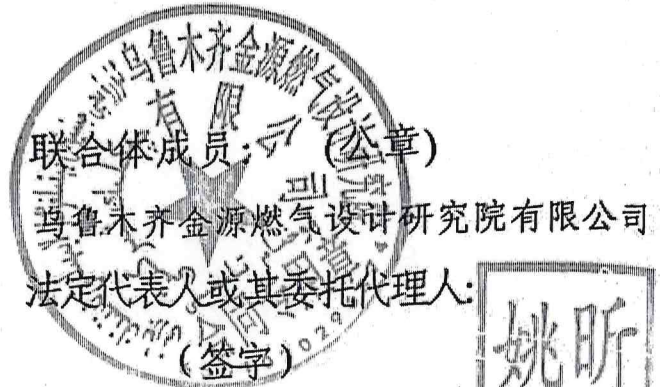 乌鲁木齐金源燃气设计研究院
有限公司
联合体成员: (公章)
乌鲁木齐金源燃气设计研究院有限公司
法定代表人或其委托代理人:
(签字)
姚昕